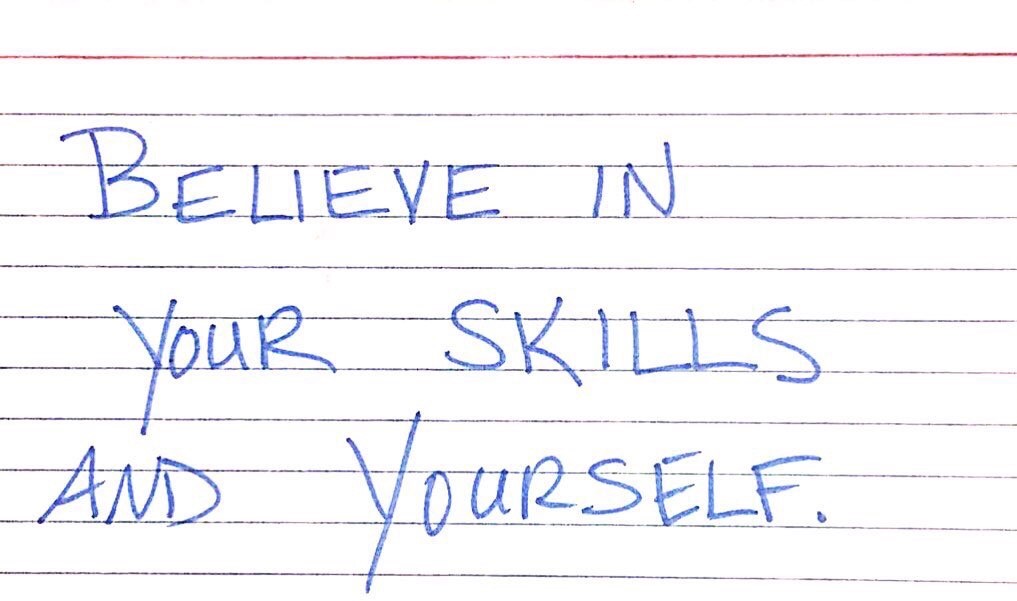 BELIEVE IN
YOUR SKILLS
AND YOURSELF.